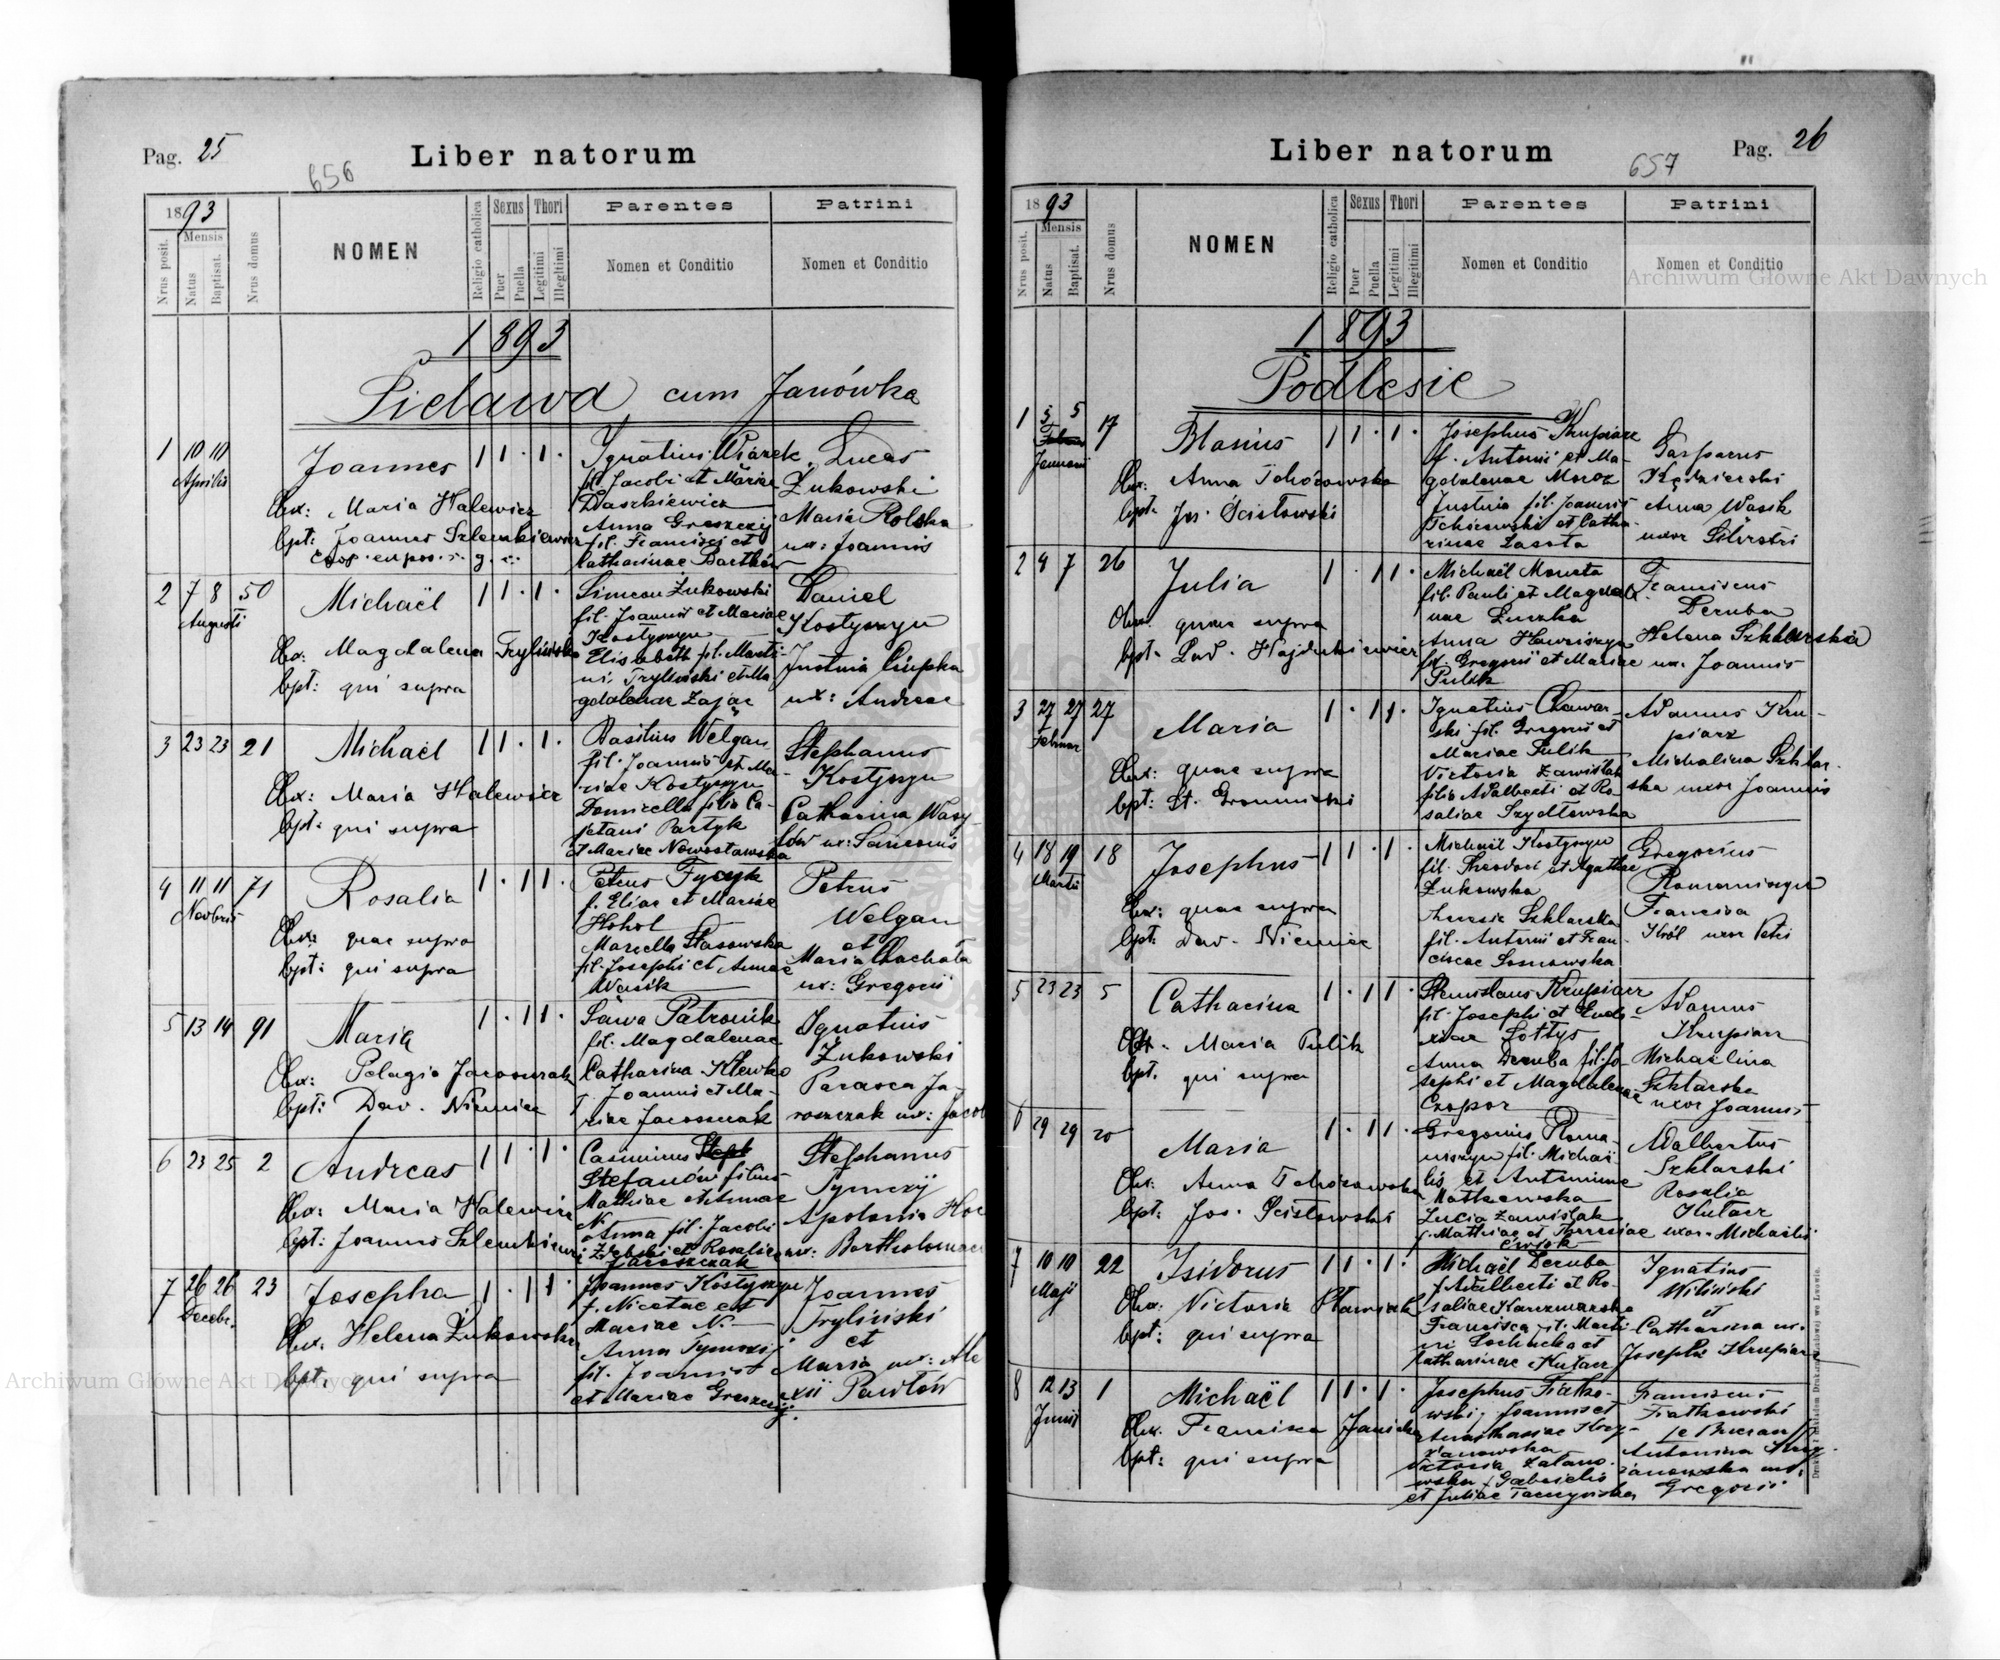 Pag. 25
Liber natorum
656
1893
Mensis
Nrus posit.
Natus
Baptisat.
Nrus domus
NOMEN
Religio catholica
Sexus
Puer
Puella
Thori
Legitimi
Illegitimi
Parentes
Nomen et Conditio
Patrini
Nomen et Conditio
1893
cum Janówka
1 10 10
Aprilis
Joannes
Obx: Maria Halewicz
bpt: Joannes Szlemkiewicz
Ignatius Wiącek
fil. Jacobi et Mariae
Daszkiewicz
Anna Greszczij
fil. Francisci et
Catharinae Bartków
Lucas
Żukowski
Maria Rolska
ux: Joannis
2 7 8 50
Augusti
Michaël
Obx: Magdalena Trylińska
bpt: qui supra
Simeon Żukowski
fil. Joannis et Mariae
Kostyszyn
Elisabeth fil. Marti-
ni Tryliński et Ma
gdalenae Zając
Daniel
Kostyszyn
Justina Ciupka
ux: Andreae
3 23 23 21
Michaël
Obx: Maria Halewicz
bpt: qui supra
Basilius Welgan
fil. Joannis et Ma-
riae Kostyszyn
Domicella filia Ca-
jetani Partyk
et Mariae Nowosławska
Stephanus
Kostyszyn
Catharina Wasy
lów ux: Simeonis
4 11 11 71
Novbris
Rosalia
Obx: quae supra
bpt: qui supra
Petrus Fycyk
f. Eliae et Mariae
Hohol
Marcella Stasowska
fil. Josephi et Annae
Wasik
Petrus
Welgan
et
Maria Chachoła
ux: Gregorii
5 13 14 91
Maria
Obx: Pelagia Jaroszczak
bpt: Dav. Niemiec
Sawa Patronik
fil. Magdalenae
Catharina Klewko
f. Joannis et Ma-
riae Jaroszczak
Ignatius
Żukowski
Parasca Ja-
roszczak ux: Jacobi
6 23 25 2
Andreas
Obx: Maria Halewicz
bpt: Joannes Szlemkiewicz
Casimirus
Stefanów filius
Mathiae et Annae
N.
Anna fil. Jacobi
et Rosaliae
Jaroszczak
Stephanus
Tymczij
Apolonia
ux: Bartholomaei
7 26 26 23
Decebr.
Josepha
Obx. Helena Żukowska
bpt: qui supra
Joannes Kostyszyn
f. Nicetae et
Mariae N.
Anna Tymczij
fil. Joannis
et Mariae Greszczij
Joannes
Tryliński
et
Maria ux: Ale
xii Pawłów
Liber natorum
657
Pag. 26
1893
Mensis
Nrus posit.
Natus
Baptisat.
Nrus domus
NOMEN
Religio catholica
Sexus
Puer
Puella
Thori
Legitimi
Illegitimi
Parentes
Nomen et Conditio
Patrini
Nomen et Conditio
1893
Podlesie
1 5 5 17
Januarii
Blasius
Obx: Anna Tchórzowska
bpt. Jos. Ścisłowski
Josephus Krupiarz
f. Antonii et Ma-
gdalenae Moroz
Justina fil. Joannis
Tchórzowski et Catha-
rinae Lasota
Gasparus
Kędzierski
Anna Wasik
uxor Silvestri
2 4 7 26
Julia
Obx. quae supra
bpt. Lad. Hajdukiewicz
Michaël Moneta
fil. Pauli et Magdale
nae Łuszka
Anna Hawriszyn
fil. Gregorii et Mariae
Pulik
Franciscus
Deruba
Helena Szklarska
ux. Joannis
3 27 27 27
Februar
Maria
Obx: quae supra
bpt: St. Gromnicki
Ignatius Chawar-
ski fil. Gregorii et
Mariae Pulik
Victoria Zawiślak
filia Adalberti et Ro-
saliae Szydłowska
Adamus Kru-
piarz
Michalina Szklar-
ska uxor Joannis
4 18 19 18
Martii
Josephus
Obx: quae supra
bpt: Dav. Niemiec
Michaël Kostyszyn
fil. Theodori et Agathae
Żukowska
Theresia Szklarska
fil. Antonii et Fran-
ciscae Sosnowska
Gregorius
Romaniszyn
Francisca
Król uxor Petri
5 23 23 5
Catharina
Obx. Maria Pulik
bpt. qui supra
Stanislaus Krupiarz
fil. Josephi et Eudo-
xiae Sołtys
Anna Deruba fil. Jo-
sephi et Magdalenae
Czopor
Adamus
Krupiarz
Michaëlina
Szklarska
uxor Joannis
6 29 29 20
Maria
Obx: Anna Tchórzowska
bpt: Jos. Ścisłowski
Gregorius Roma-
niszyn fil. Michaë-
lis et Antoninae
Matkowska
Lucia Zawiślak
f. Mathiae et Theresiae
Adalbertus
Szklarski
Rosalia
Kutacz
uxor Michaëlis
7 10 10 22
Maji
Isidorus
Obx: Victoria Stawniak
bpt: qui supra
Michaël Deruba
f. Adalberti et Ro-
saliae Karczmarska
Francisca fil. Marti-
ni Łochucka et
Catharinae Kutacz
Ignatius
Miliński
et
Catharina ux.
Josephi Krupiarz
8 12 13 1
Junii
Michaël
Obx. Francisca Janicka
bpt: qui supra
Josephus Fiałko-
wski, Joannis et
Anasthasiae Krzy-
żanowska
Victoria Załano-
wska f. Gabrielis
et Juliae Taczyńska
Franciscus
Fiałkowski
Antonina Krzy-
żanowska ux.
Gregorii
Archiwum Główne Akt Dawnych
Archiwum Główne Akt Dawnych